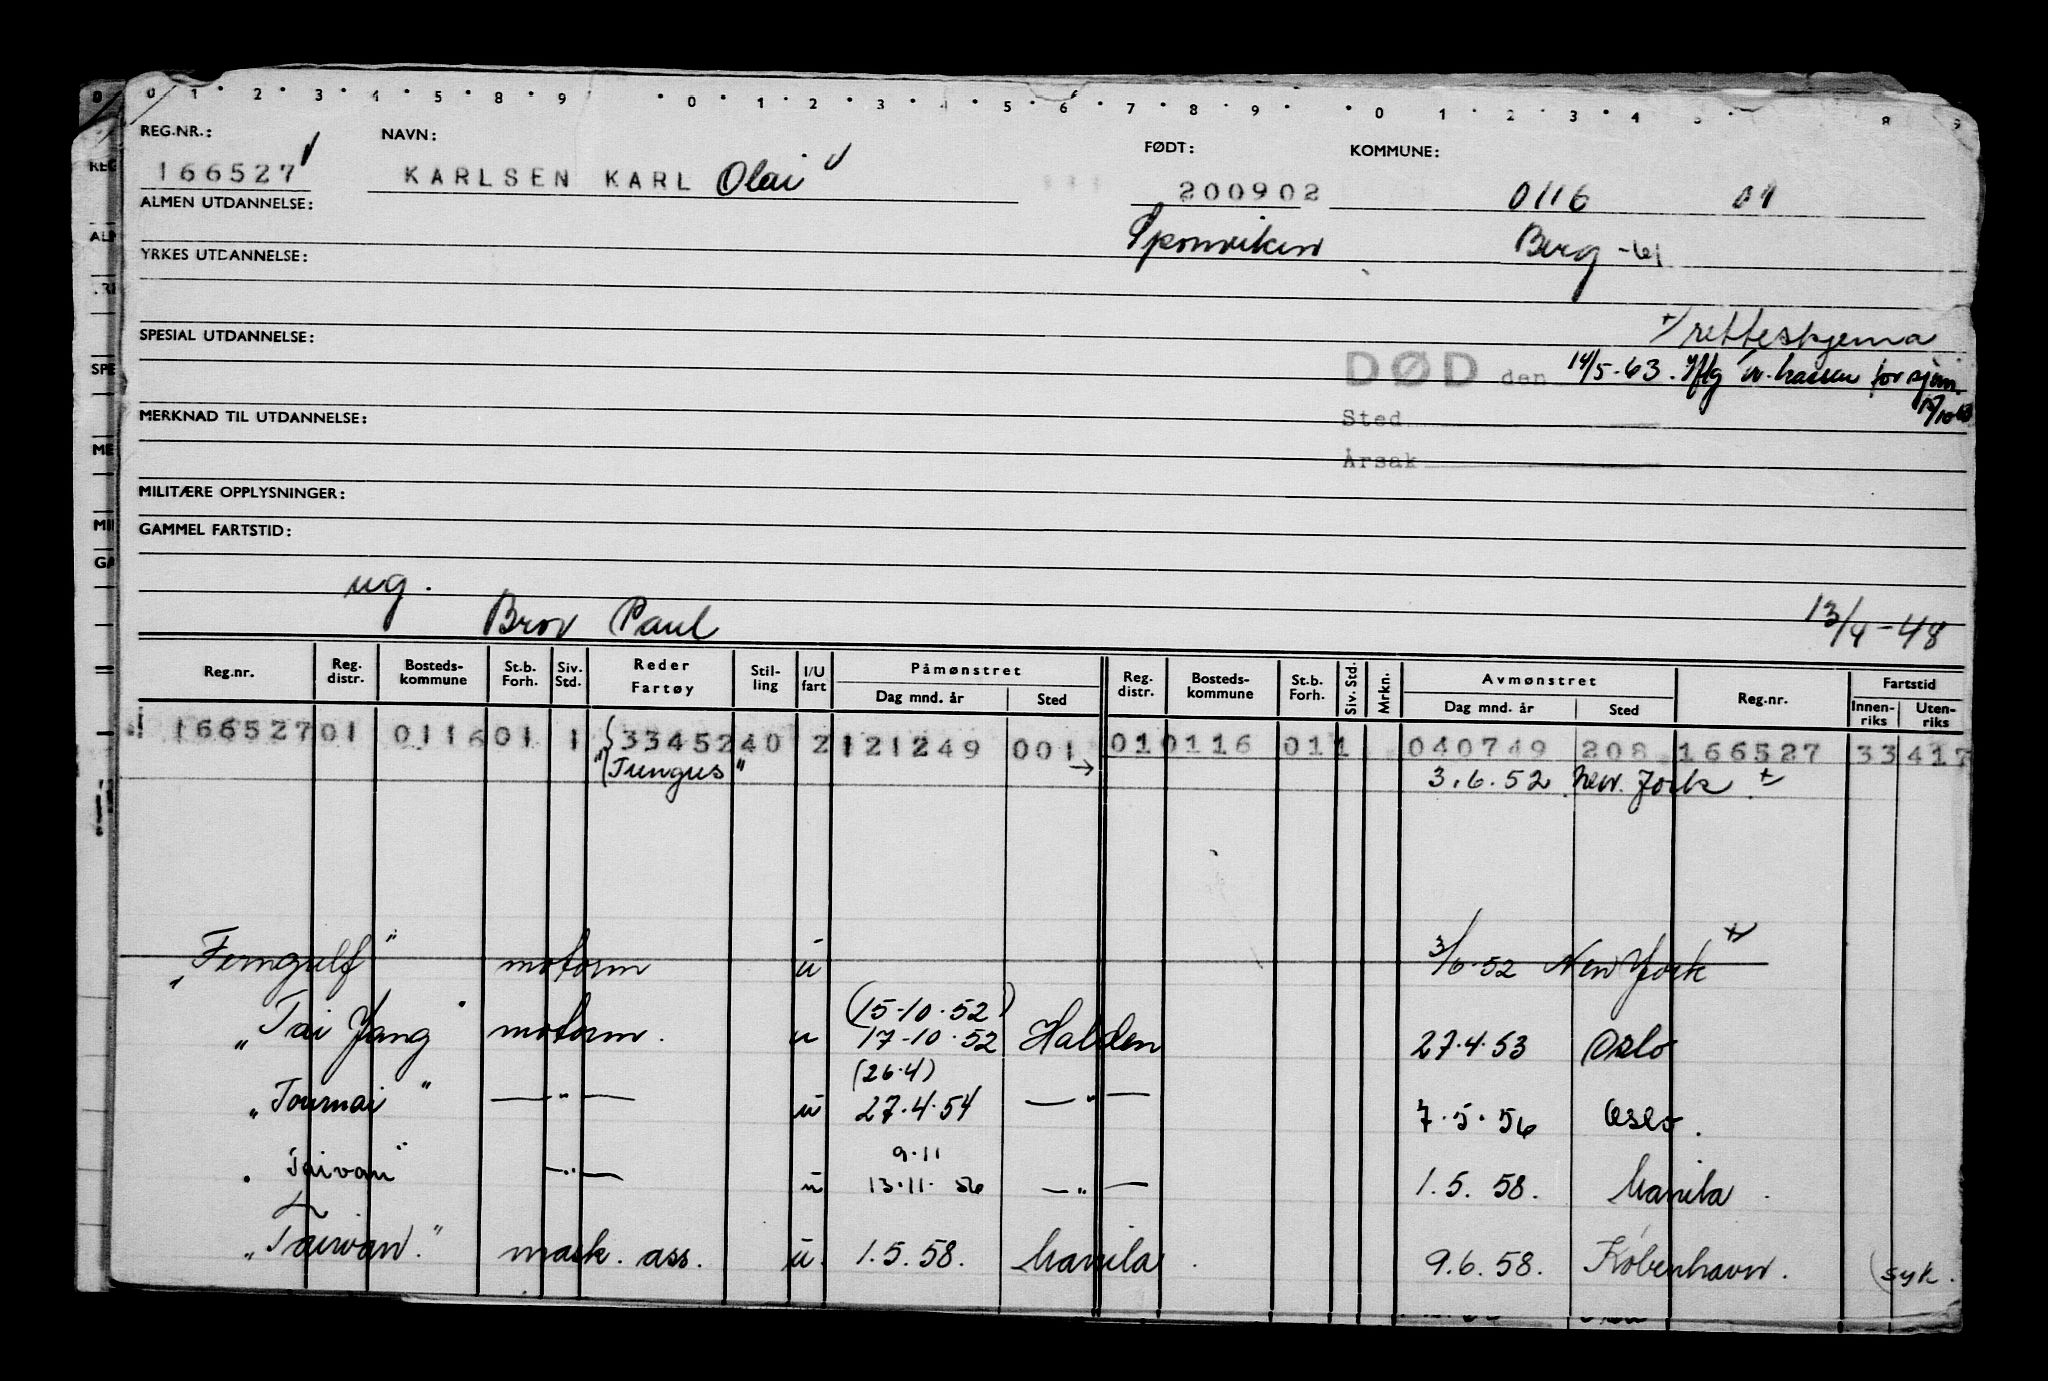 0 1 2 3 4 5 8 9 0 1 2 3 4 5 6 7 8 9 0 1 2 3 4 5 8 9
REG.NR.: NAVN: FØDT: KOMMUNE:
166527 KARLSEN KARL Olai 200902 0116 01
ALMEN UTDANNELSE: Sponviken Berg -61
YRKES UTDANNELSE:
retteskjema
SPESIAL UTDANNELSE:
DØD den 14/5-63. Iflg for sjøm.
15/10 63
MERKNAD TIL UTDANNELSE: Sted
Årsak
MILITÆRE OPPLYSNINGER:
GAMMEL FARTSTID:
ug.
Bror Paul 13/4-48
Reg.nr. Reg. distr. Bosteds-kommune St.b. Forh. Siv. Std. Reder Fartøy Stil-ling I/U fart Påmønstret Dag mnd. år Sted Reg. distr. Bosteds-kommune St.b. Forh. Siv. Std. Mrkn. Avmønstret Dag mnd. år Sted Reg.nr. Fartstid Innen-riks Uten-riks
166527 01 0116 01 1 33452 40 2 121249 001 01 0116 01 1 040749 208 166527 33 417
"Tungus" → 3.6.52 New York +
"Ferngulf" motorm u 3/6-52 New York +
(15-10-52)
"Tai Yang" motorm. u 17-10-52 Halden 27.4.53 Oslo
(26.4)
"Tournai" — " — u 27.4.54 — " — 7.5.56 Oslo.
9.11
"Taivan" — " — u 13.11.56 — " — 1.5.58. Manila
"Taiwan." mask. ass. u. 1.5.58. Manila 9.6.58. København. (syk.